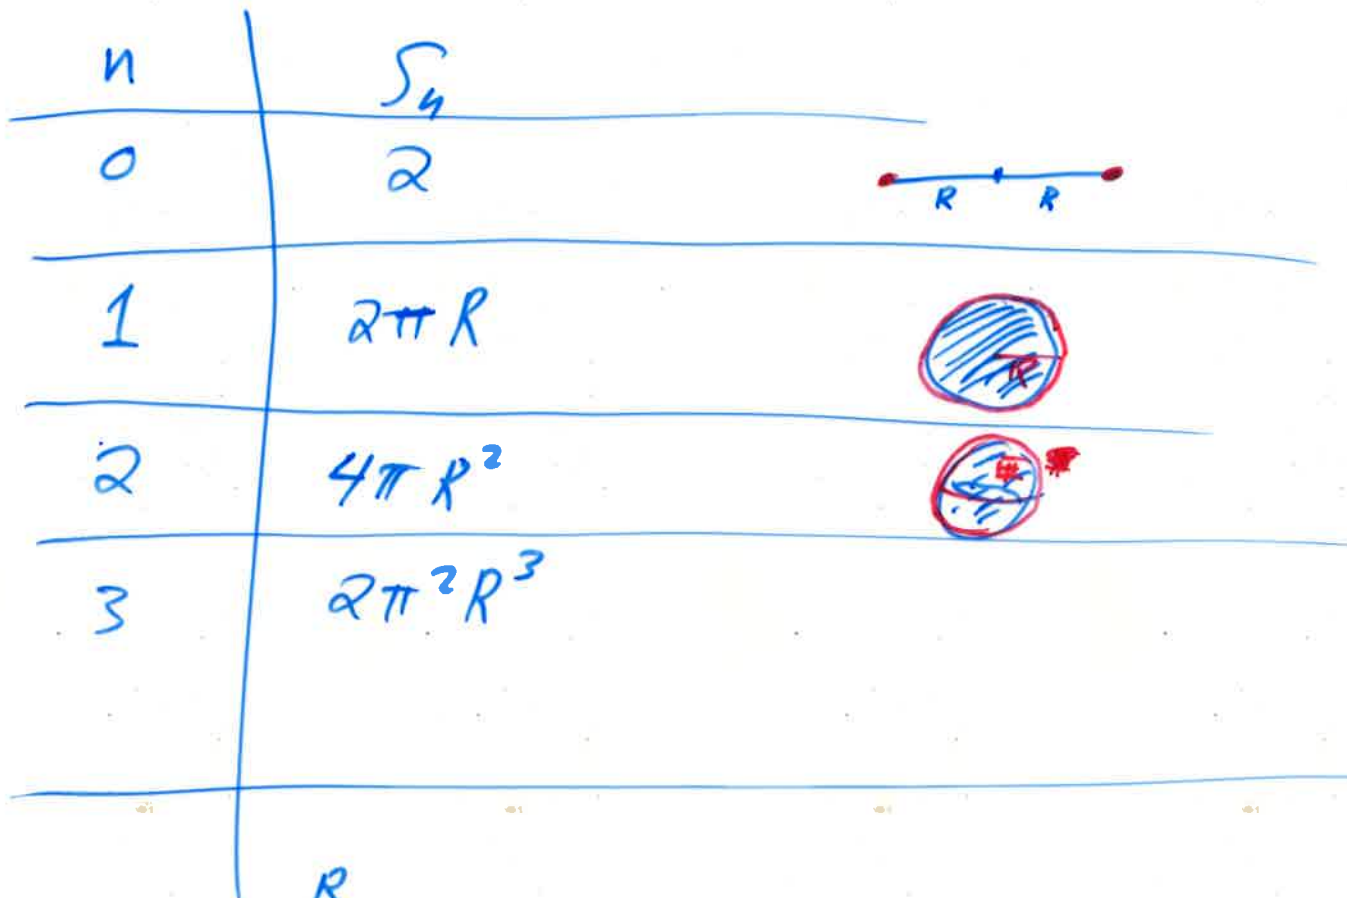 n S_n
0 2
R R
1 2π R
R
2 4π R²
3 2π² R³
R